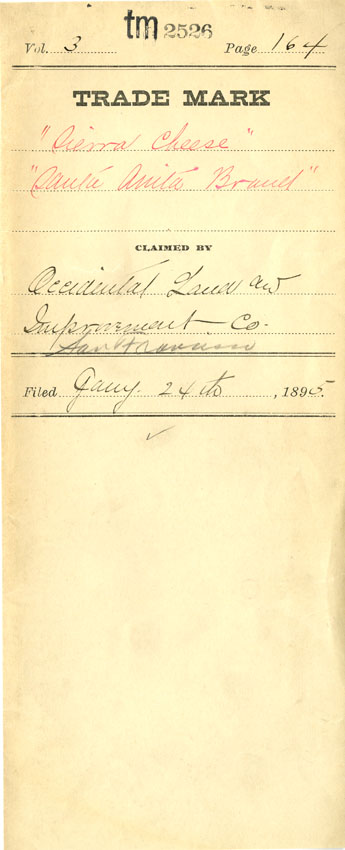 tm 2526
Vol. 3 Page 164
TRADE MARK
"Sierra Cheese"
"Santa Anita Brand"
CLAIMED BY
Occidental Land and
Improvement Co.
San Francisco
Filed Jany. 24th, 1895.